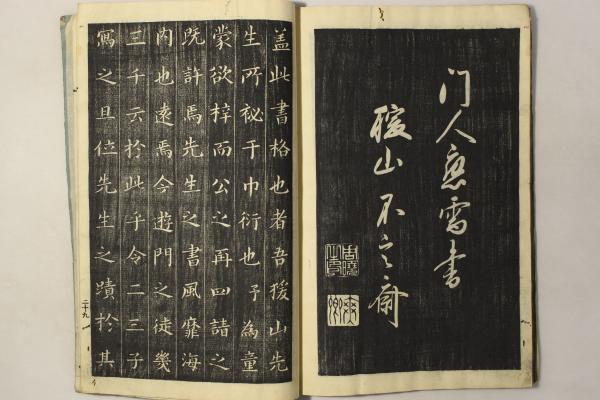 门人應需書
猨山不言齋
盖此書格也者吾猨山先
生所祕于巾衍也予為童
蒙欲梓而公之再四請之
既許焉先生之書風靡海
内也遠焉今遊門之徒幾
三千云於此乎令二三子
寫之且位先生之蹟於其
二十九